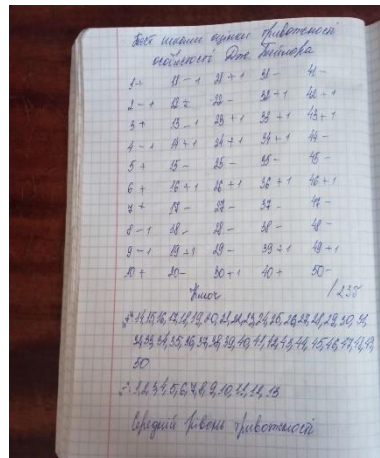 Тест шкали оцінки тривожності
особистості Дж Тейлора
1+ 11 – 1 21 + 1 31 – 41 –
2 – 1 12 + 22 – 32 + 1 42 + 1
3 + 13 – 1 23 + 1 33 + 1 43 + 1
4 – 1 14 + 1 24 + 1 34 + 1 44 –
5 + 15 – 25 – 35 – 45 –
6 + 16 + 1 26 + 1 36 + 1 46 + 1
7 + 17 – 27 – 37 – 47 –
8 – 1 18 – 28 – 38 – 48 –
9 – 1 19 + 1 29 – 39 + 1 49 + 1
10 + 20 – 30 + 1 40 + 50 –
Ключ / 23б
14,15,16,17,18,19,20,21,22,23,24,25,26,27,28,29,30,31,
32,33,34,35,36,37,38,39,40,41,42,43,44,45,46,47,48,49,
50
1,2,3,4,5,6,7,8,9,10,11,12,13
Середній рівень тривожності